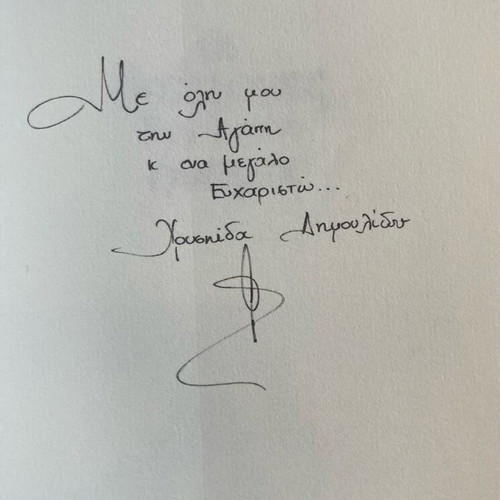 Με όλη μου
την Αγάπη
κ ένα μεγάλο
Ευχαριστώ...
Χρυσηίδα Δημουλίδου